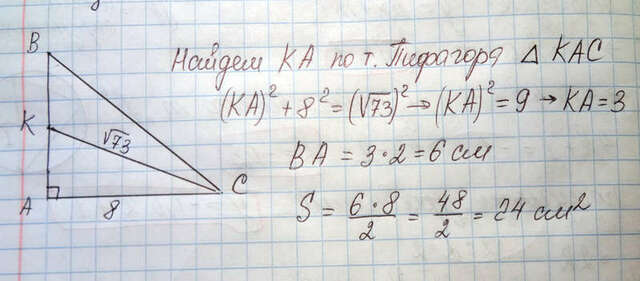 B
K
A
C
√73
8
Найдем KA по т. Пифагоря △ KAC
(KA)² + 8² = (√73)² → (KA)² = 9 → KA = 3
BA = 3 · 2 = 6 см
S = 6 · 8 / 2 = 48 / 2 = 24 см²